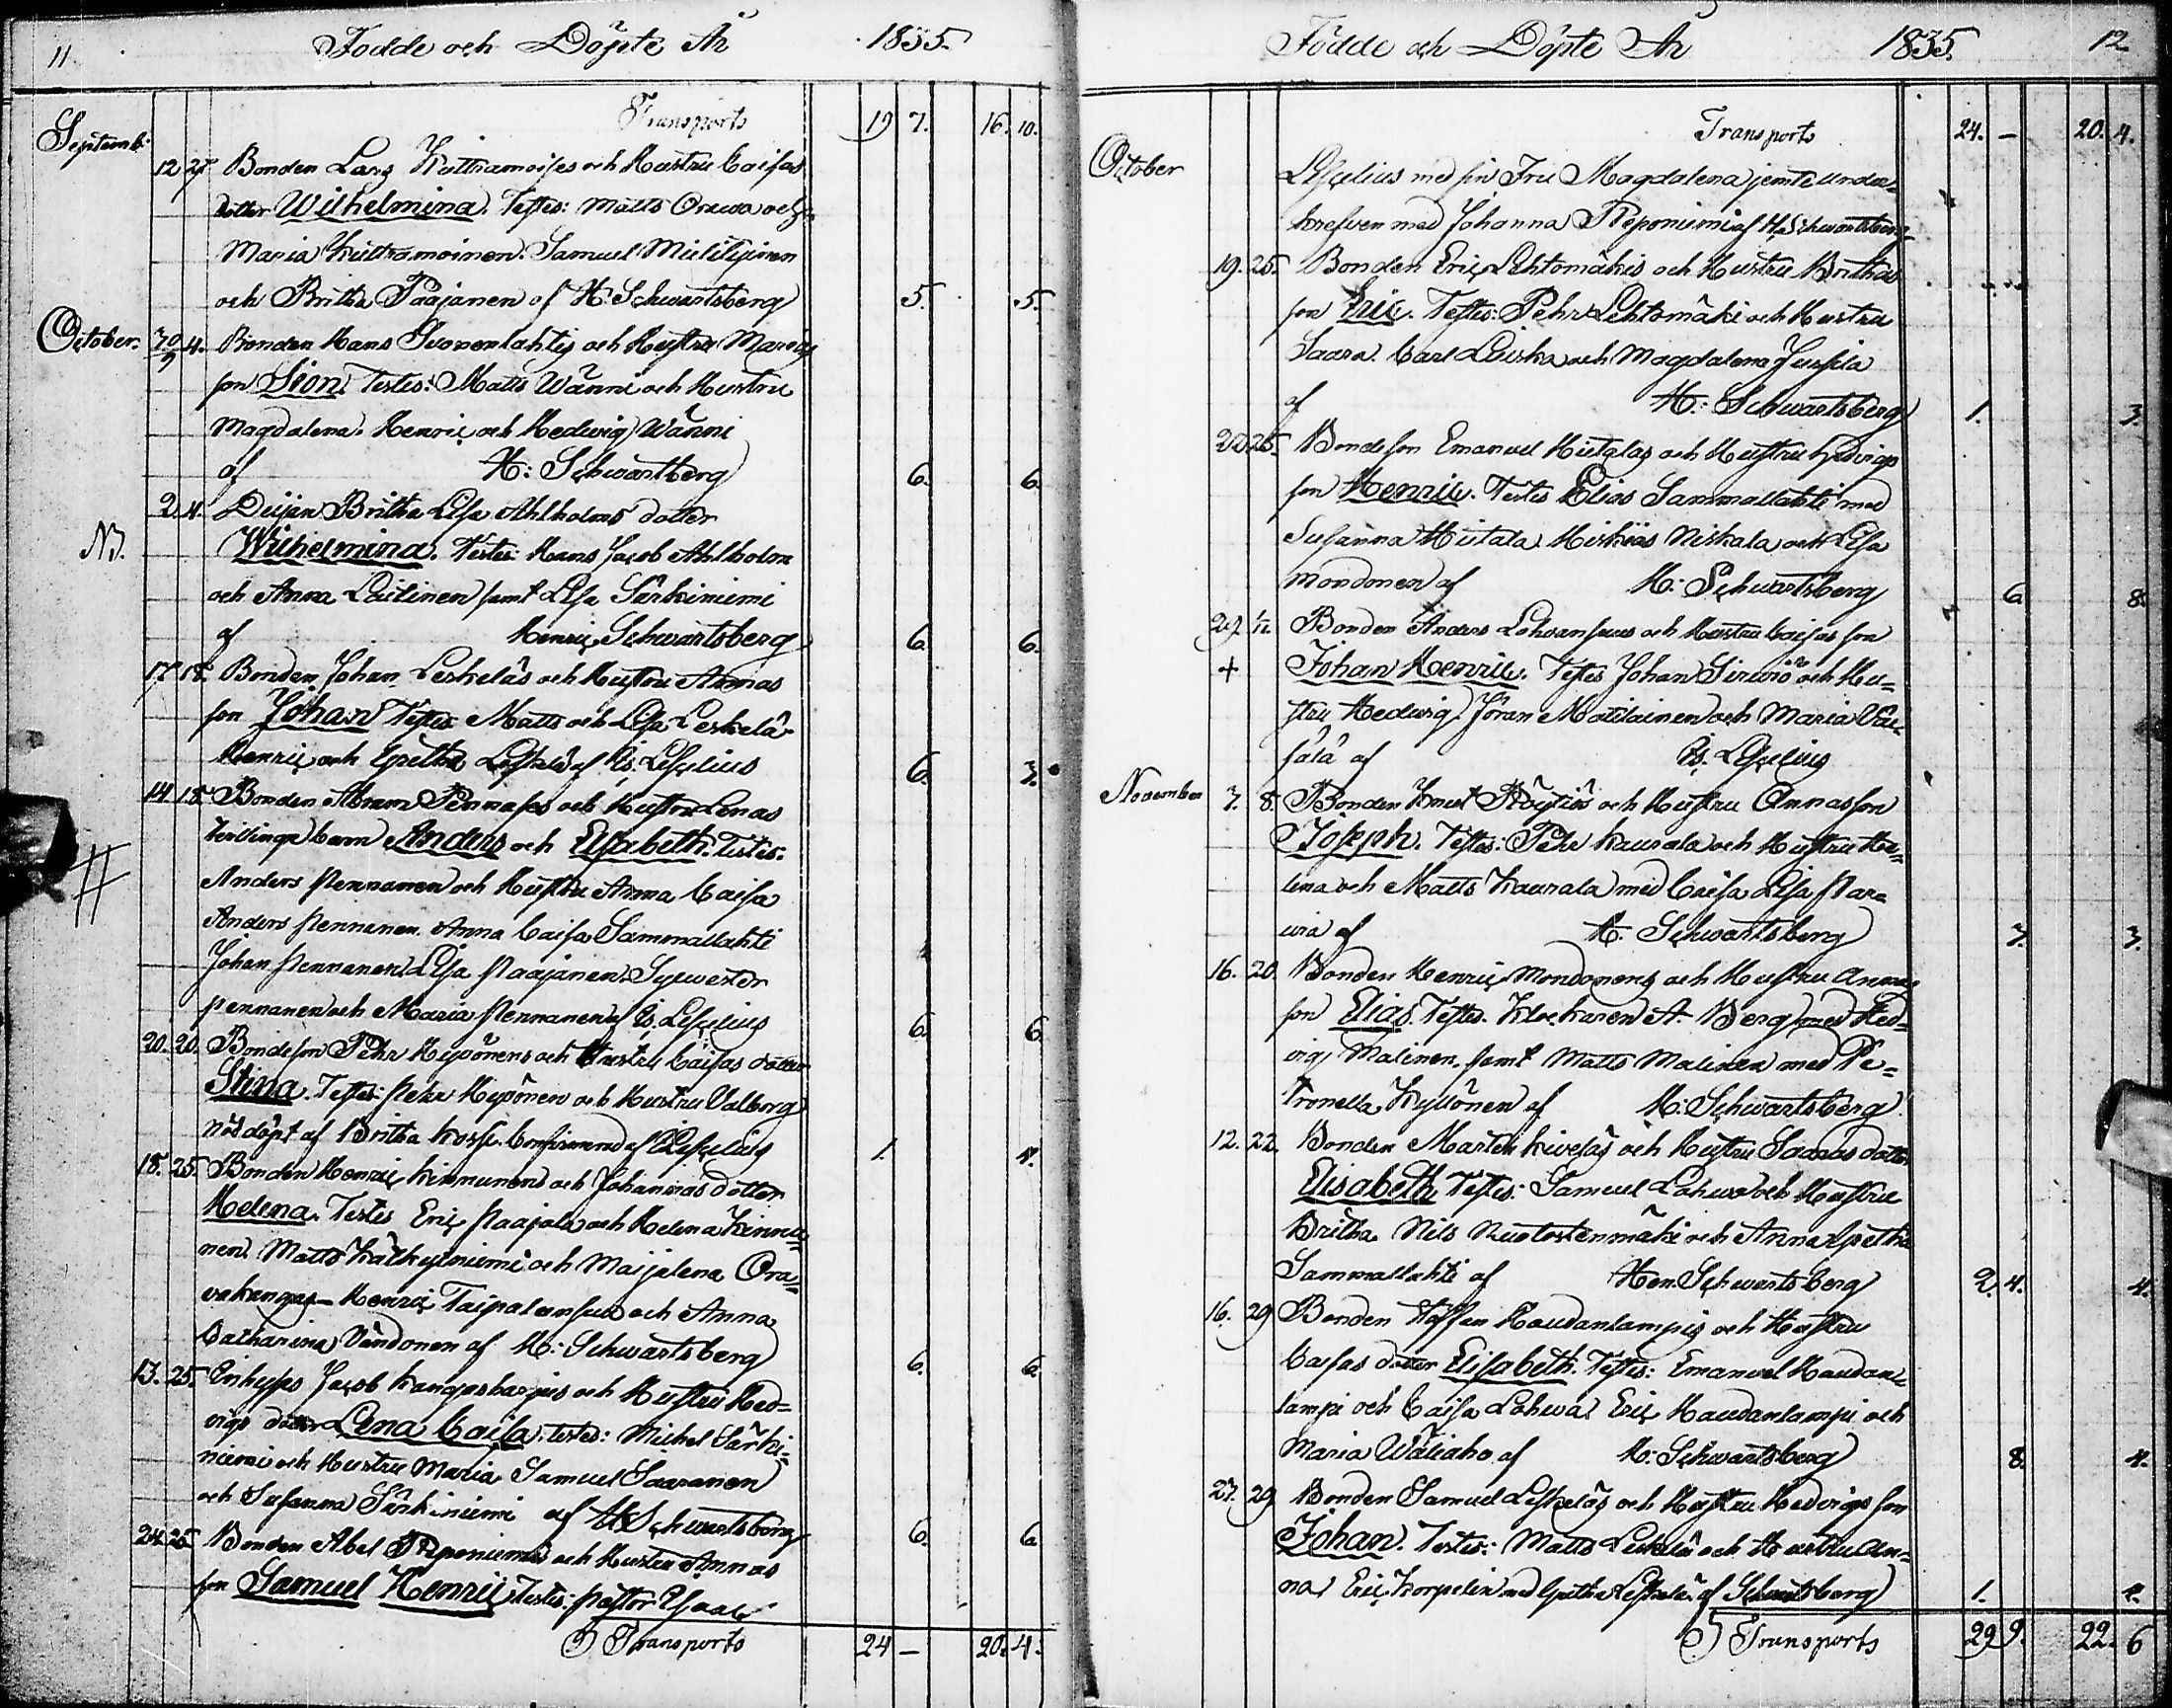 11. Födde och Döpte År 1835.
Transports 19 7. 16. 10.
Septemb:
12 27 Bonden Lars och Hustru Caisas
dotter Wilhelmina. Testes: Matts Orawa och
Maria Kultramoinen. Samuel
och Britha Paajanen af H. Schwartsberg 5. 5.
October. 30/9 4. Bonden Hans och Hustru Marias
son Sion. Testes: Matts Wänni och Hustru
Magdalena. Henric och Hedwig Wänni
af H: Schwartberg 6. 6.
2 4. Pijan Britha Lisa Ahlholms dotter
NB. Wilhelmina. Testes: Hans Jacob Ahlholm
och Anna Laitinen samt Lisa Särkiniemi
af Henric Schwartsberg 6. 6.
17 18. Bonden Johan Leskeläs och Hustru Annas
son Johan Testes Matts och Lisa Leskelä
Henric och Gretha Leskelä af Is. Lisælius 6. 3.
14 18 Bonden Abram Pennases och Hustru Lenas
tvillinge barn Anders och Elisabeth. Testes.
Anders Pennanen och Hustru Anna Caisa
Anders Pennanen. Anna Caisa Sammallahti
Johan Pennanen Lisa Paajanen. Sylwester
Pennanen och Maria Pennanen af Is. Lisælius 6. 6
20. 20. Bondeson Pehr Hypönens och Hustru Caisas dotter
Stina. Testes: Pehr Hypönen och Hustru Valborg
nöddöpt af Britha Confirmerad af Lisælius 1. 4.
18. 25. Bonden Henric Kinnunens och Johannas dotter
Helena. Testes Eric Paajala och Helena Kinnu=
nen. Matts Kälkyiniemi och Maijalena Ora=
vakangas – Henric och Anna
Catharina Vändonen af H: Schwartsberg 6. 6.
13. 25. Jacob Kangasharjus och Hustru Hed=
vigs dotter Lena Caisa. testes: Michel Särki=
niemi och Hustru Maria Samuel Saaranen
och Susanna Särkiniemi af H Schwartsberg 6. 6
24. 25. Bonden Abel Reponiemis och Hustru Annas
son Samuel Henric. Testes: Pastor
Transports 24 – 20. 4.
Födde och Döpte År 1835. 12
Transports 24. – 20. 4.
October
Lisælius med sin Fru Magdalena jemte under=
skrefven med Johanna Reponiemi af H. Schwartsberg.
19. 25. Bonden Eric Lehtomäkis och Hustru Brithas
son Eric. Testes: Pehr Lehtomäki och Hustru
Saara. Carl och Magdalena Jussila
af H: Schwartsberg 1. 3.
20 25. Bondeson Emanuel Hietalas och Hustru Hedvigs
son Henric. Testes Elias Sammallahti med
Susanna Hietala. Hiskias Niskala och Lisa
Mondonen af H: Schwartsberg 6. 8.
29 1/12. Bonden Anders Lohvansuus och Hustru Caisas son
+ Johan Henric. Testes Johan Sirviö och Hu=
stru Hedwig. Jöran Matilainen och Maria
af Is. Lisælius
November 3. 8. Bonden Knut Röytiös och Hustru Annas son
Joseph. Testes: Pehr Kaurala och Hustru He=
lena och Matts Kaurala med Caisa Lisa Par=
via af H. Schwartsberg 7. 3.
16. 20. Bonden Henric Mondonens och Hustru Annas
son Elias. Testes. Klockaren A. Berg med Hed=
vig Malinen. samt Matts Malinen med Pe=
tronella Kyllönen af H: Schwartsberg
12. 22. Bonden Marten Kiveläs och Hustru Saaras dotter
Elisabeth Testes: Samuel Lohwa och Hustru
Britha. Nils Ruotostenmäki och Anna Gretha
Sammallahti af Hen. Schwartsberg 2. 4. 4.
16. 29 Bonden Staffan Haudanlampis och Hustru
Caisas dotter Elisabeth. Testes: Emanuel Haudan=
lampi och Caisa Lohwa. Eric Haudanlampi och
Maria Wäliaho af H: Schwartsberg 8. 4.
27. 29 Bonden Samuel Leskeläs och Hustru Hedvigs son
Johan. Testes: Matts Leskelä och Hustru An=
na. Eric Korpelin med Gretha Leskelä af Schwartsberg 1.
Transports 29 9. 22. 6